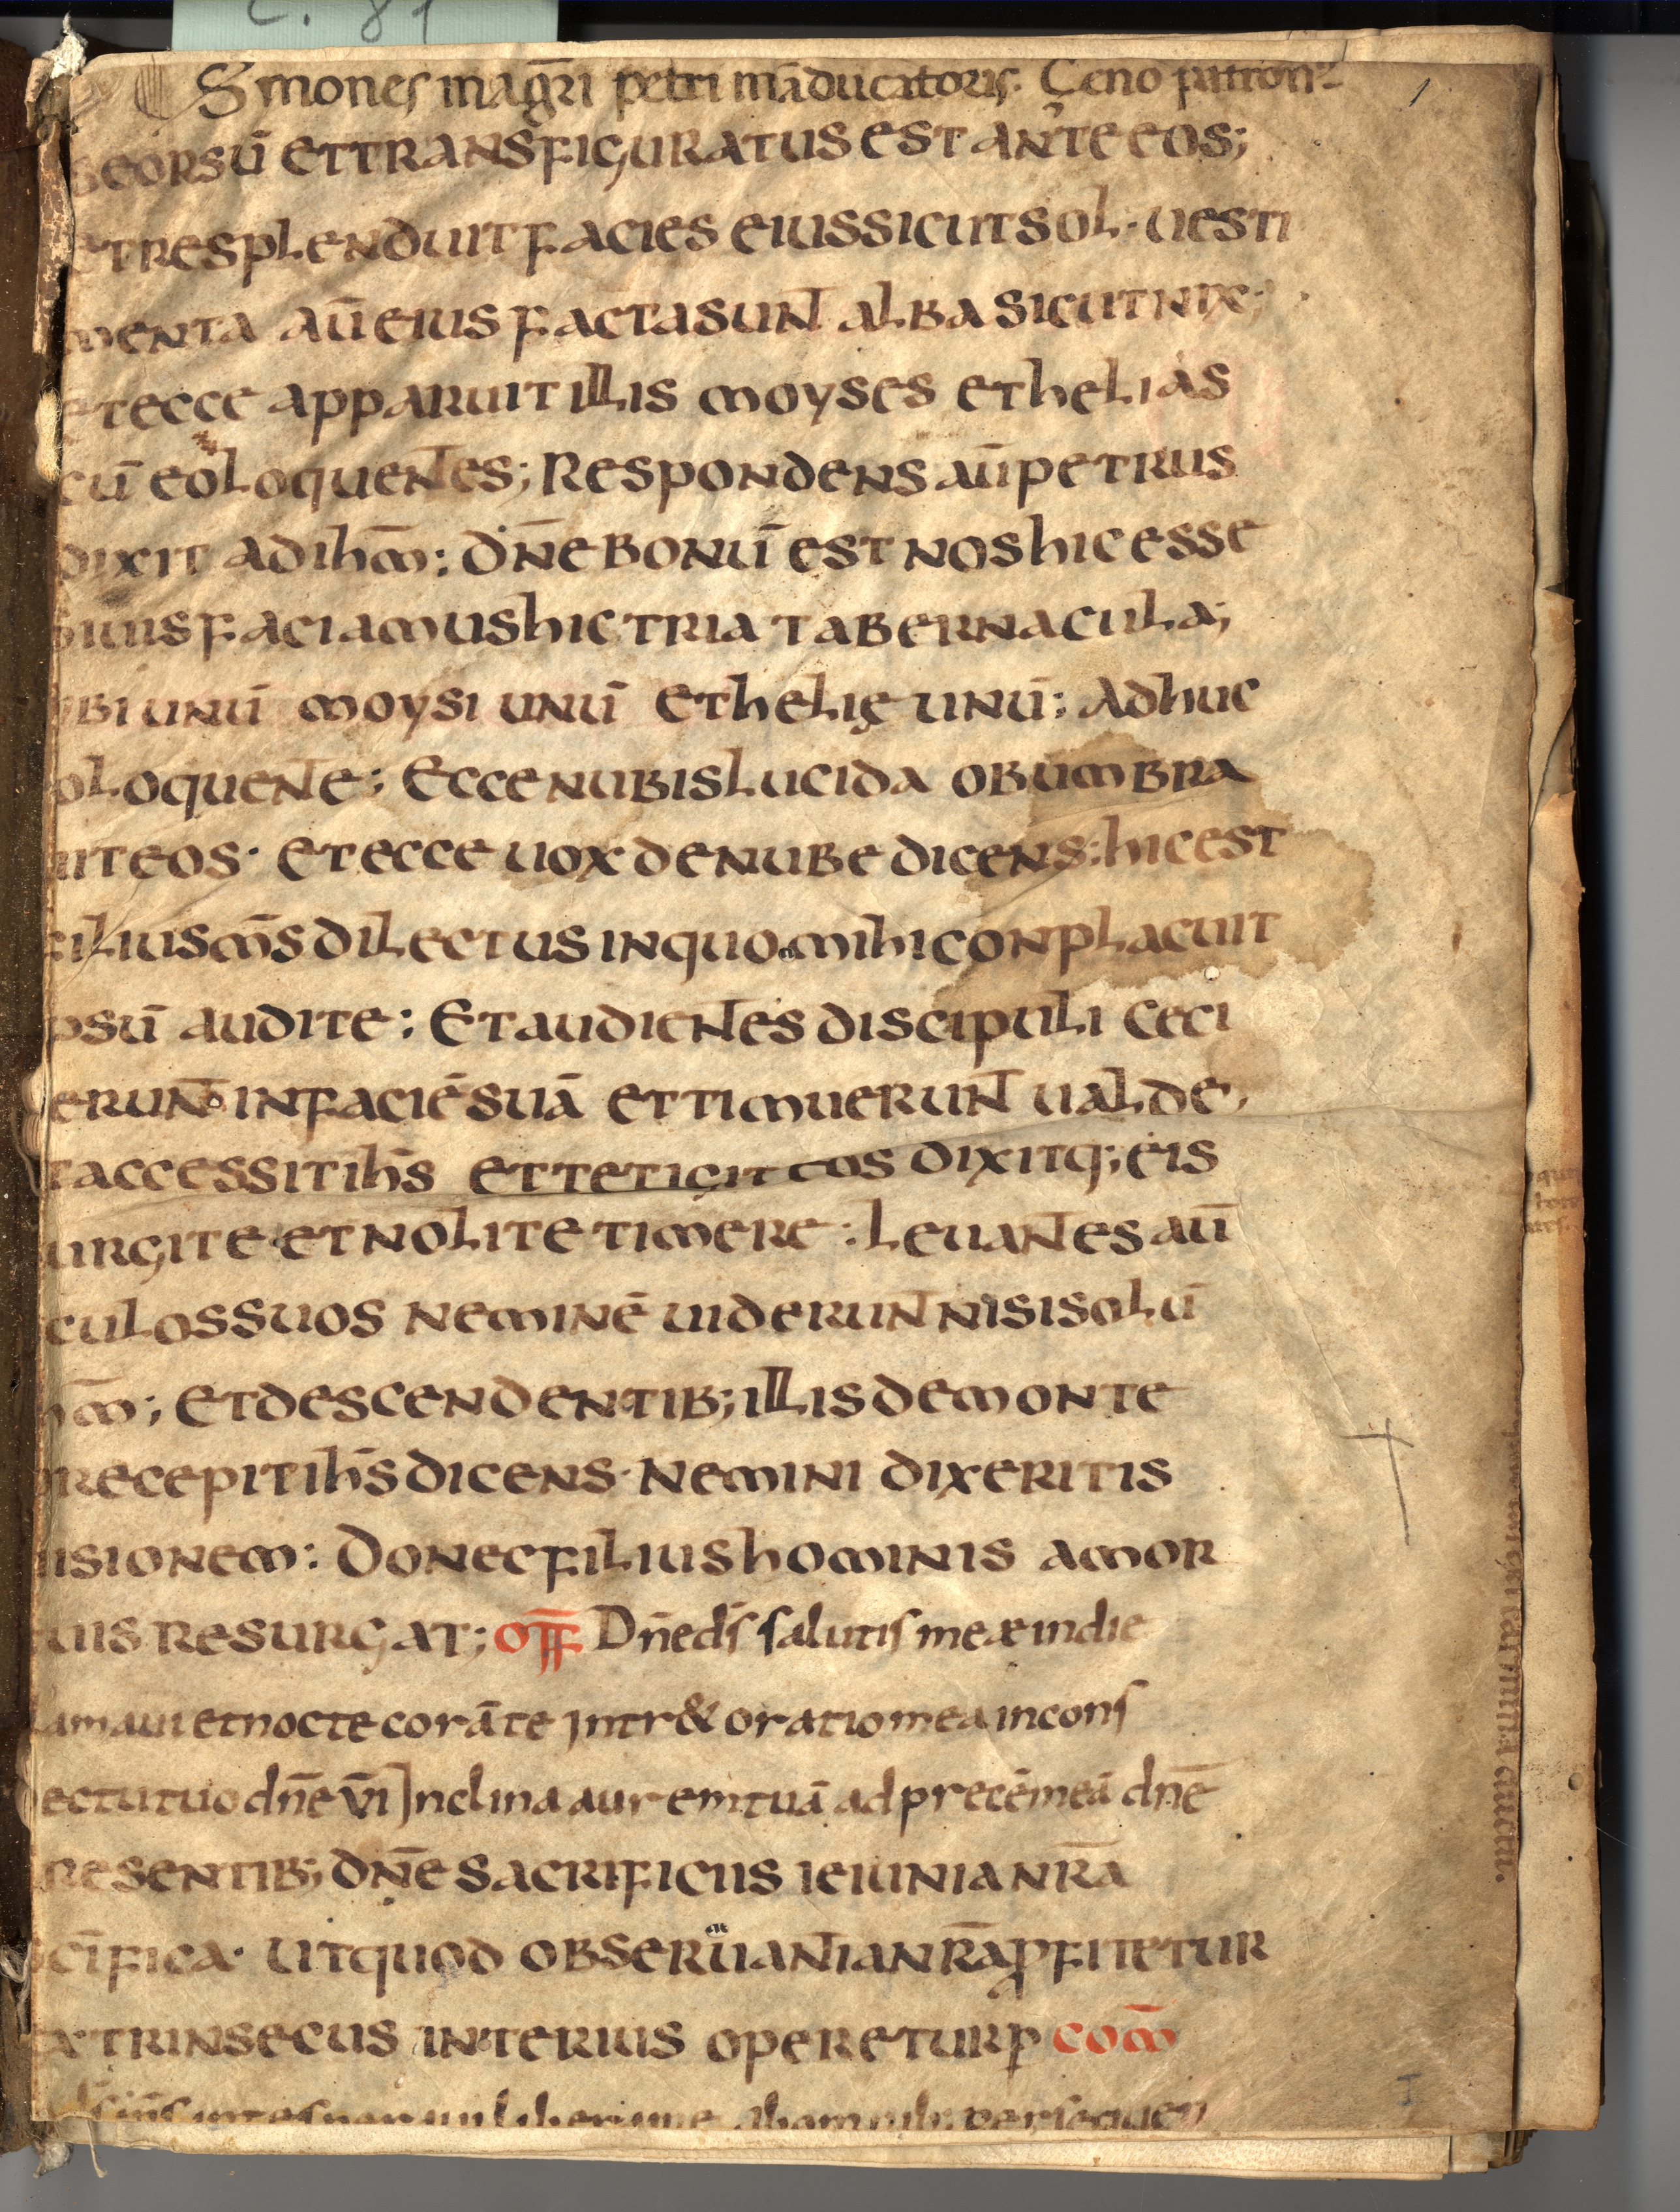 c. 81
Smones mag̅ri petri ma̅ducatoris. Ceno patron
1
seorsu̅ et transfiguratus est ante eos;
et resplenduit facies eius sicut sol · uesti
menta au̅ eius facta sunt alba sicut nix;
et ecce apparuit illis moyses et helias
cu̅ eo loquentes; Respondens au̅ petrus
dixit ad ihm̅: dn̅e bonu̅ est nos hic esse
si uis faciamus hic tria tabernacula;
ibi unu̅ moysi unu̅ et helię unu̅: Adhuc
o loquente; Ecce nubis lucida obumbra
uit eos · et ecce uox de nube dicens: hic est
filius ms̅ dilectus in quo mihi conplacuit
psu̅ audite: Et audientes discipuli ceci
erunt in facie̅ sua̅ et timuerunt ualde,
t accessit ihs̅ et tetigit eos dixitq; eis
urgite et nolite timere: Leuantes au̅
culos suos nemine̅ uiderunt nisi solu̅
hm̅; et descendentib; illis de monte
recepit ihs̅ dicens · Nemini dixeritis
uisionem: Donec filius hominis a mor
tuis resurgat; off̅ Dn̅e ds̅ salutis meæ in die
lamaui et nocte cora̅ te intr& oratio mea in cons
ectu tuo dn̅e v̅i Inclina aurem tua̅ ad prece̅ mea̅ dn̅e
resentib; dn̅e sacrificiis ieiunia nr̅a
cifica · ut quod obseruantia nr̅a ꝓfitetur
xtrinsecus interius operetur ꝑ com̅